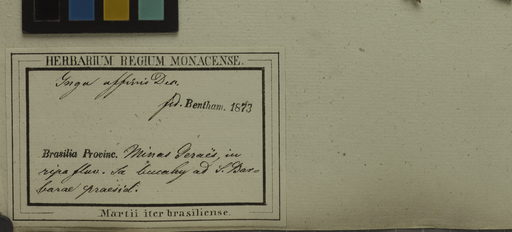 HERBARIUM REGIUM MONACENSE.
Inga affinis Dec.
fid. Bentham. 1873
Brasilia Provinc. Minas Geraës, in
ripa fluv. Sa bucahy ad S. Bar-
barae praesid.
Martii iter brasiliense.